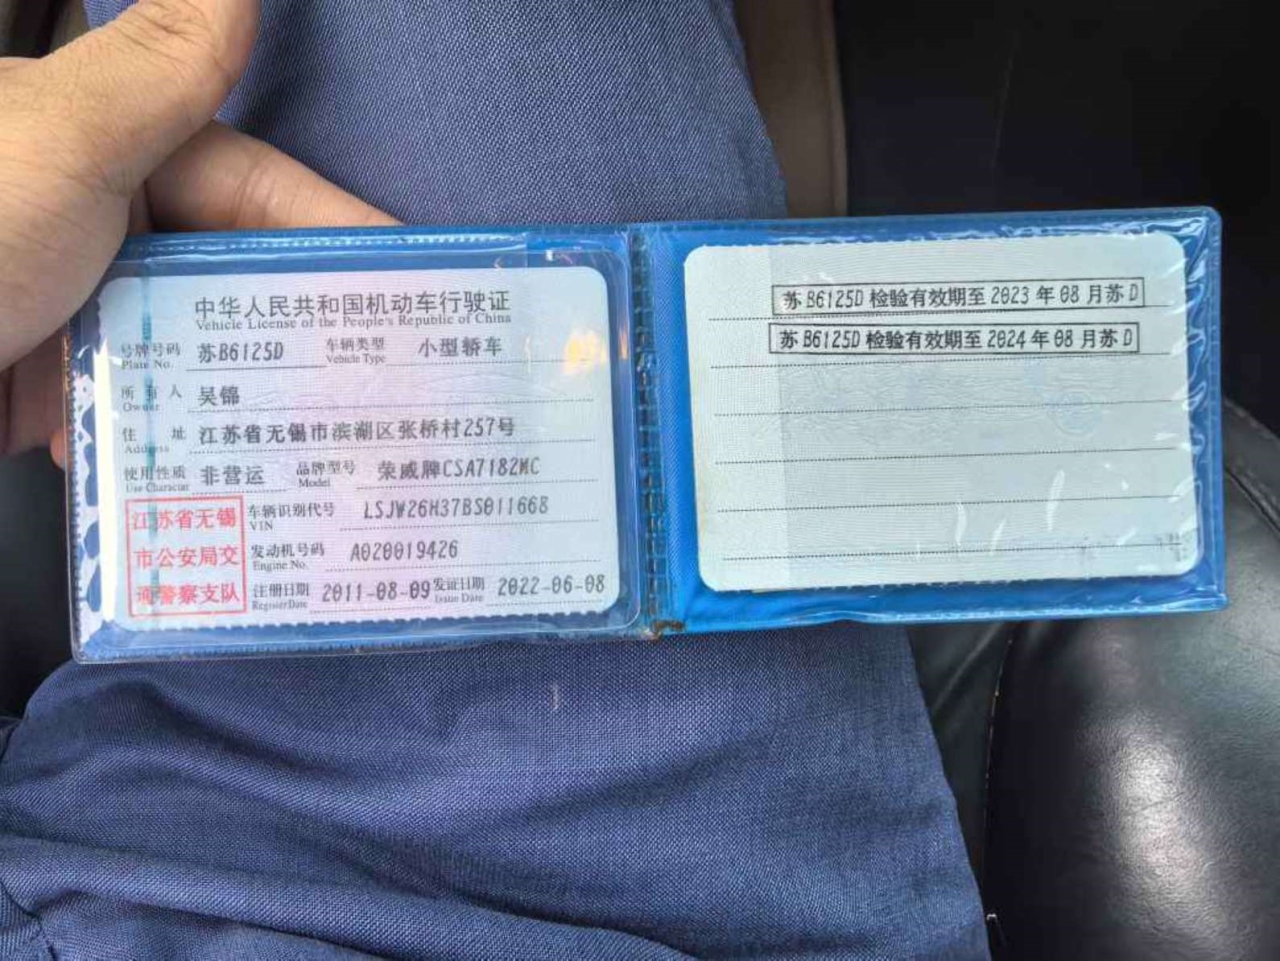 中华人民共和国机动车行驶证
Vehicle License of the People's Republic of China
号牌号码 苏B6125D 车辆类型 小型轿车
Plate No. Vehicle Type
所有人 吴锦
Owner
住址 江苏省无锡市滨湖区张桥村257号
Address
使用性质 非营运 品牌型号 荣威牌CSA7182MC
Use Character Model
江苏省无锡 车辆识别代号 LSJW26H37BS011668
VIN
市公安局交 发动机号码 A020019426
Engine No.
通警察支队 注册日期 2011-08-09 发证日期 2022-06-08
Register Date Issue Date
苏B6125D检验有效期至2023年08月苏D
苏B6125D检验有效期至2024年08月苏D